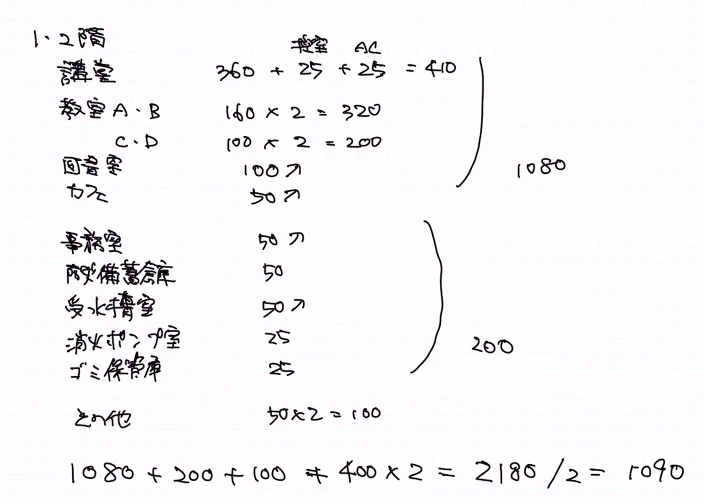 1・2階
控室 AC
講堂 360 + 25 + 25 = 410
教室 A・B 160 × 2 = 320
C・D 100 × 2 = 200
図書室 100↗
カフェ 50↗
1080
事務室 50↗
防災備蓄倉庫 50
受水槽室 50↗
消火ポンプ室 25
ゴミ保管庫 25
200
その他 50×2 = 100
1080 + 200 + 100 + 400 × 2 = 2180 /2 = 1090